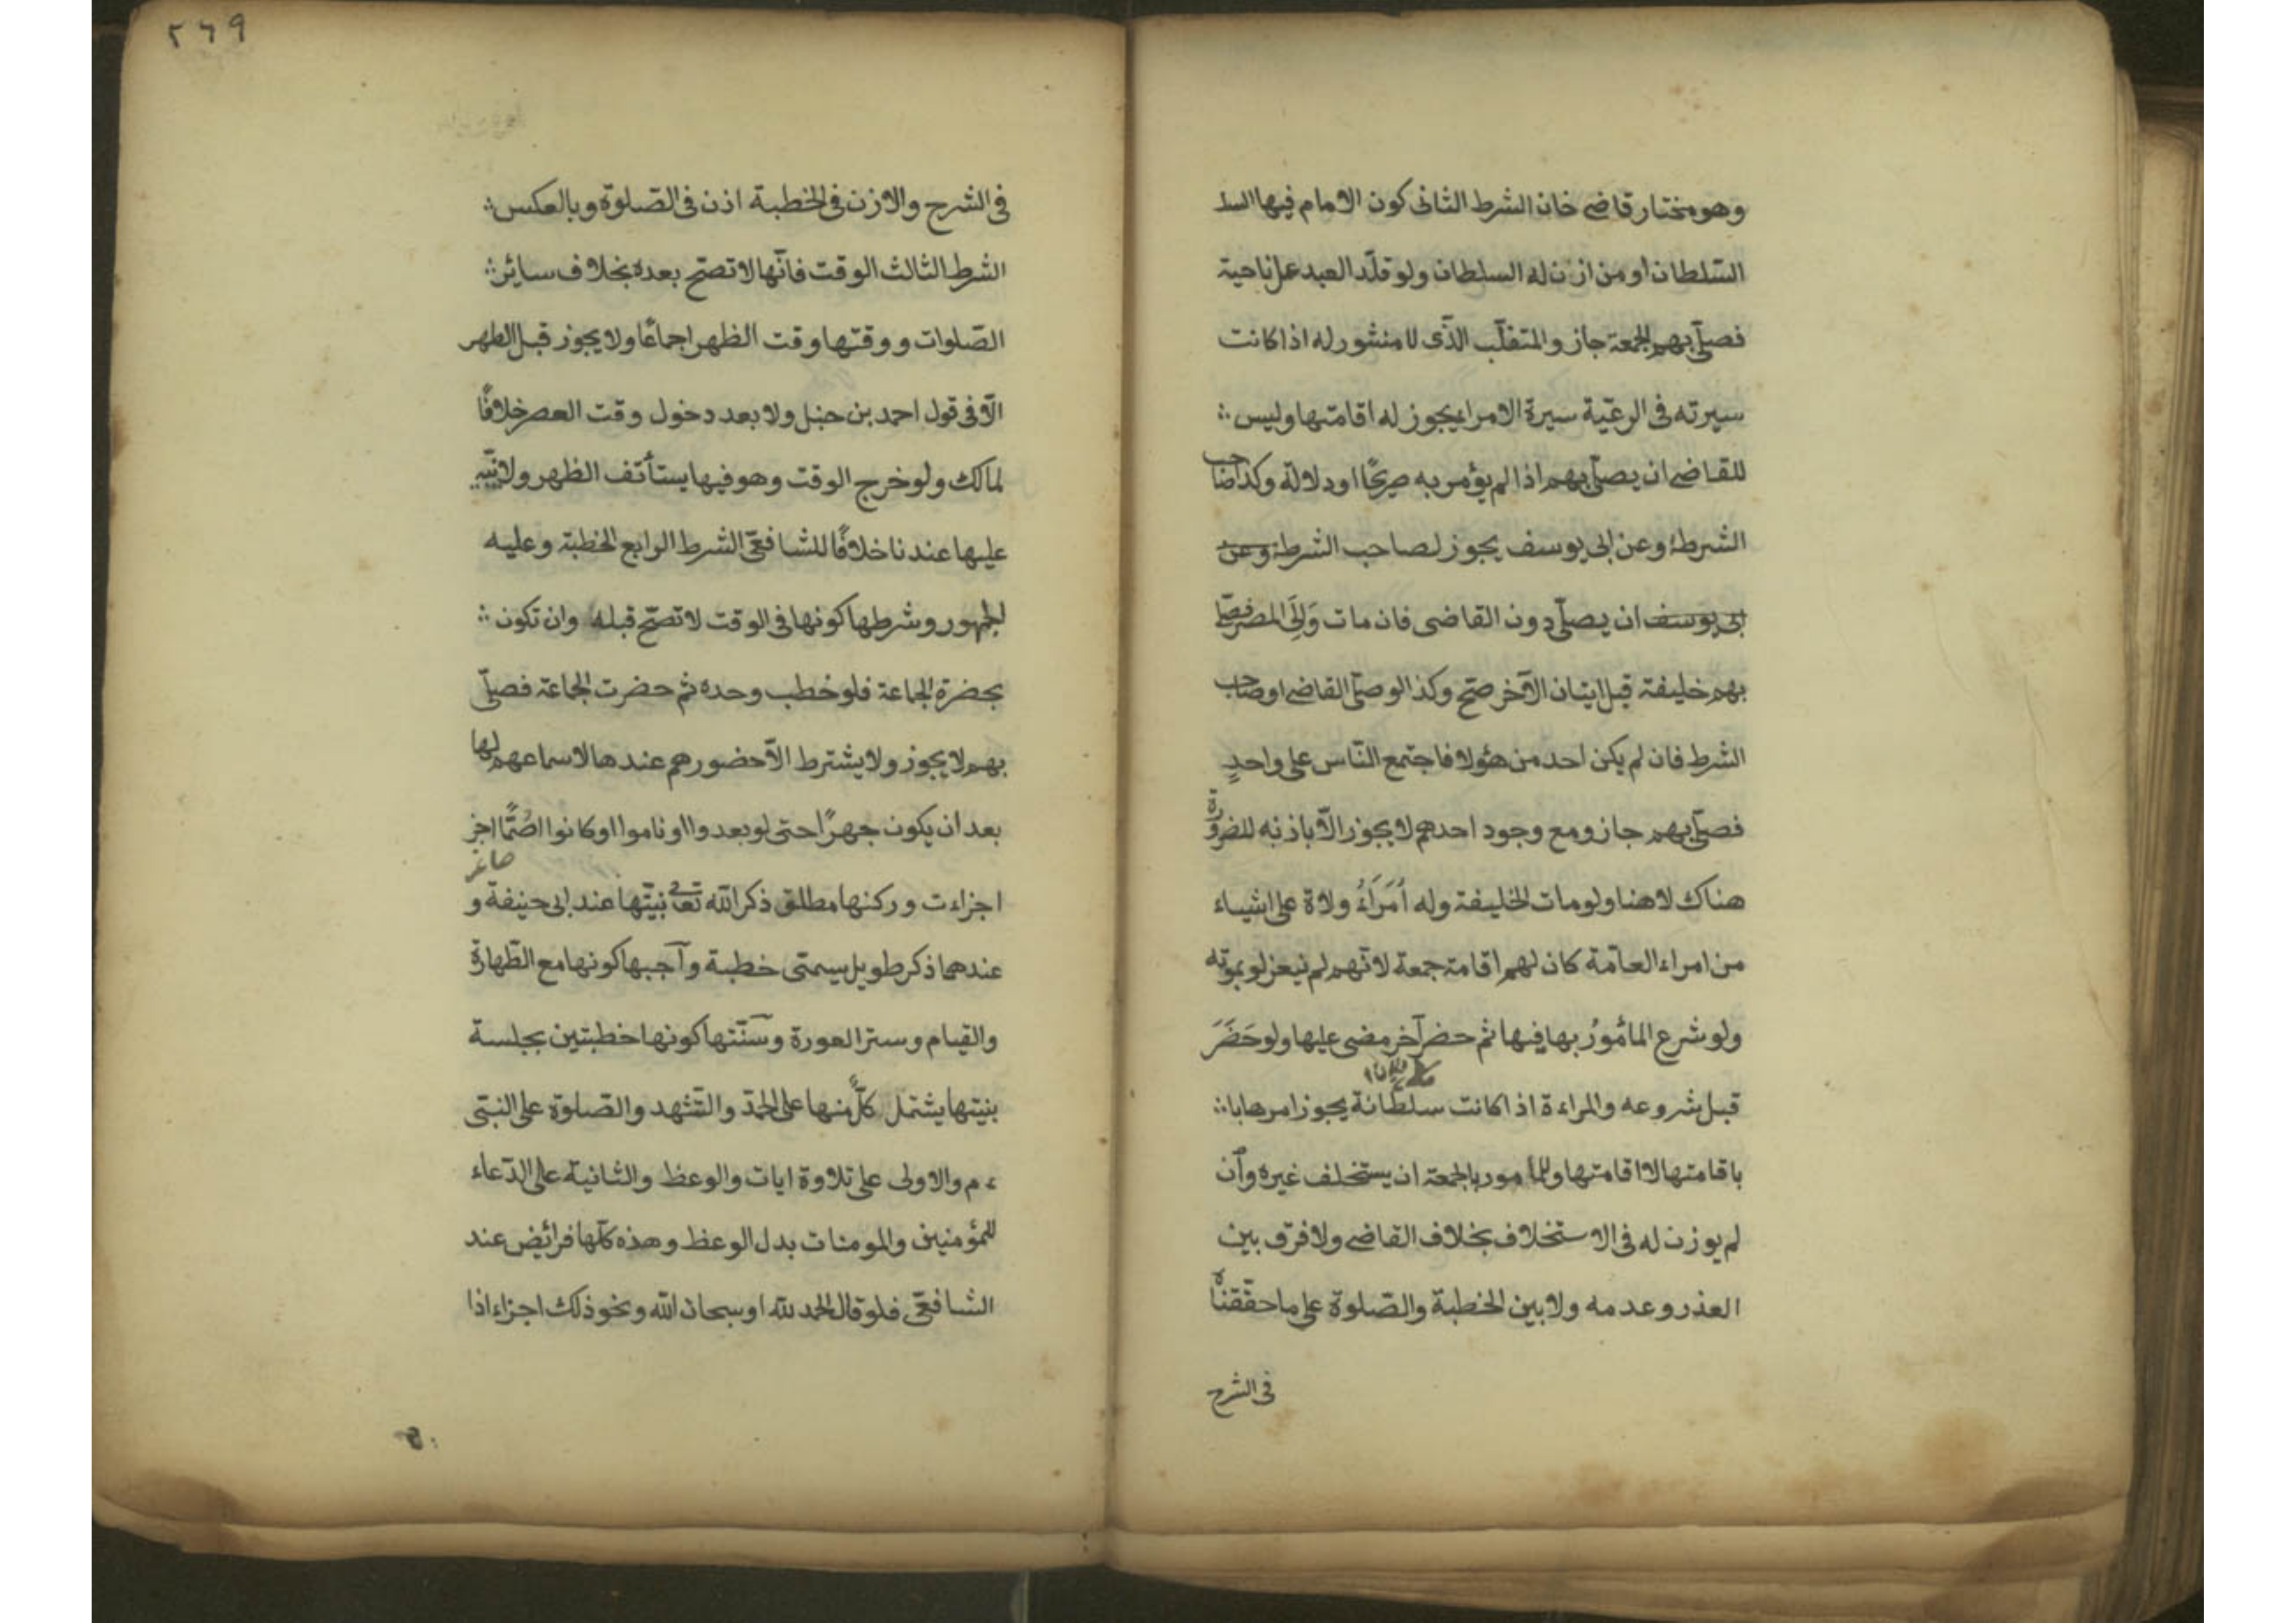 وهو مختار قاضى خان الشرط الثانى كون الامام فيها السد
السّلطان او من ازن له السلطان ولو قلّد العبد على ناحية
فصلّى بهم الجمعة جاز والمتغلّب الّذى لا منشور له اذا كانت
سيرته فى الرعيّة سيرة الامرا يجوز له اقامتها وليس ؞
للقاضى ان يصلّى بهم اذا لم يؤمر به صريحًا او دلالة وكذا صاحب
الشرطة وعن ابى يوسف يجوز لصاحب الشرطة وعن
ابى يوسف ان يصلّى دون القاضى فان مات وَالِى المصر فصلّى
بهم خليفة قبل اتيان الآخر صحّ وكذا لو صلّى القاضى او صاحب
الشرط فان لم يكن احد من هؤلا فاجتمع النّاس على واحدٍ
فصلّى بهم جاز ومع وجود احدهم لا يجوز الّا باذنه للضرورة
هناك لا هنا ولو مات الخليفة وله أُمَرَاءُ ولاة على اشياء
من امراء العامّة كان لهم اقامة جمعة لانّهم لم ينعزلو بموته
ولو شرع المأمُورُ بها فيها ثم حضر آخر مضى عليها ولو حَضَرَ
قبل شروعه والمراءة اذا كانت سلطانة يجوز امرها با ؞
باقامتها لا اقامتها وللمأمور بالجمعة ان يستخلف غيره وان
لم يوزن له فى الاستخلاف بخلاف القاضى ولا فرق بين
العذر وعدمه ولا بين الخطبة والصّلوة على ما حقّقناه
فى الشرح
٢٦٩
فى الشرح والازن فى الخطبة اذن فى الصّلوة وبالعكس ؞
الشرط الثالث الوقت فانّها لا تصحّ بعده بخلاف سائر ؞
الصّلوات ووقتها وقت الظهر اجماعًا ولا يجوز قبل الظهر
الّا فى قول احمد بن حنبل ولا بعد دخول وقت العصر خلافًا
لمالك ولو خرج الوقت وهو فيها يستأنف الظهر ولا يبنيه
عليها عندنا خلافًا للشافعىّ الشرط الرابع الخطبة وعليه
الجمهور وشرطها كونها فى الوقت لا تصحّ قبله وان تكون ؞
بحضرة الجماعة فلو خطب وحده ثم حضرت الجماعة فصلّى
بهم لا يجوز ولا يشترط الّا حضورهم عندها لا سماعهم لها
بعد ان يكون جهرًا حتى لو بعدوا او ناموا او كانوا اصُمًّا اجز
اجزاءت وركنها مطلق ذكر الله تعالى بنيّتها عند ابى حنيفة و
عندهما ذكر طويل يسمّى خطبة وآجبها كونها مع الطّهارة
والقيام وستر العورة وسنّتها كونها خطبتين بجلسة
بنيتها يشتمل كلٌّ منها على الحمد والتشهد والصّلوة على النبىّ
ءم والاولى على تلاوة ايات والوعظ والثانية على الدّعاء
للمؤمنين والمومنات بدل الوعظ وهذه كلّها فرائض عند
الشافعىّ فلو قال الحمد لله او سبحان الله ونحو ذلك اجزاء اذا